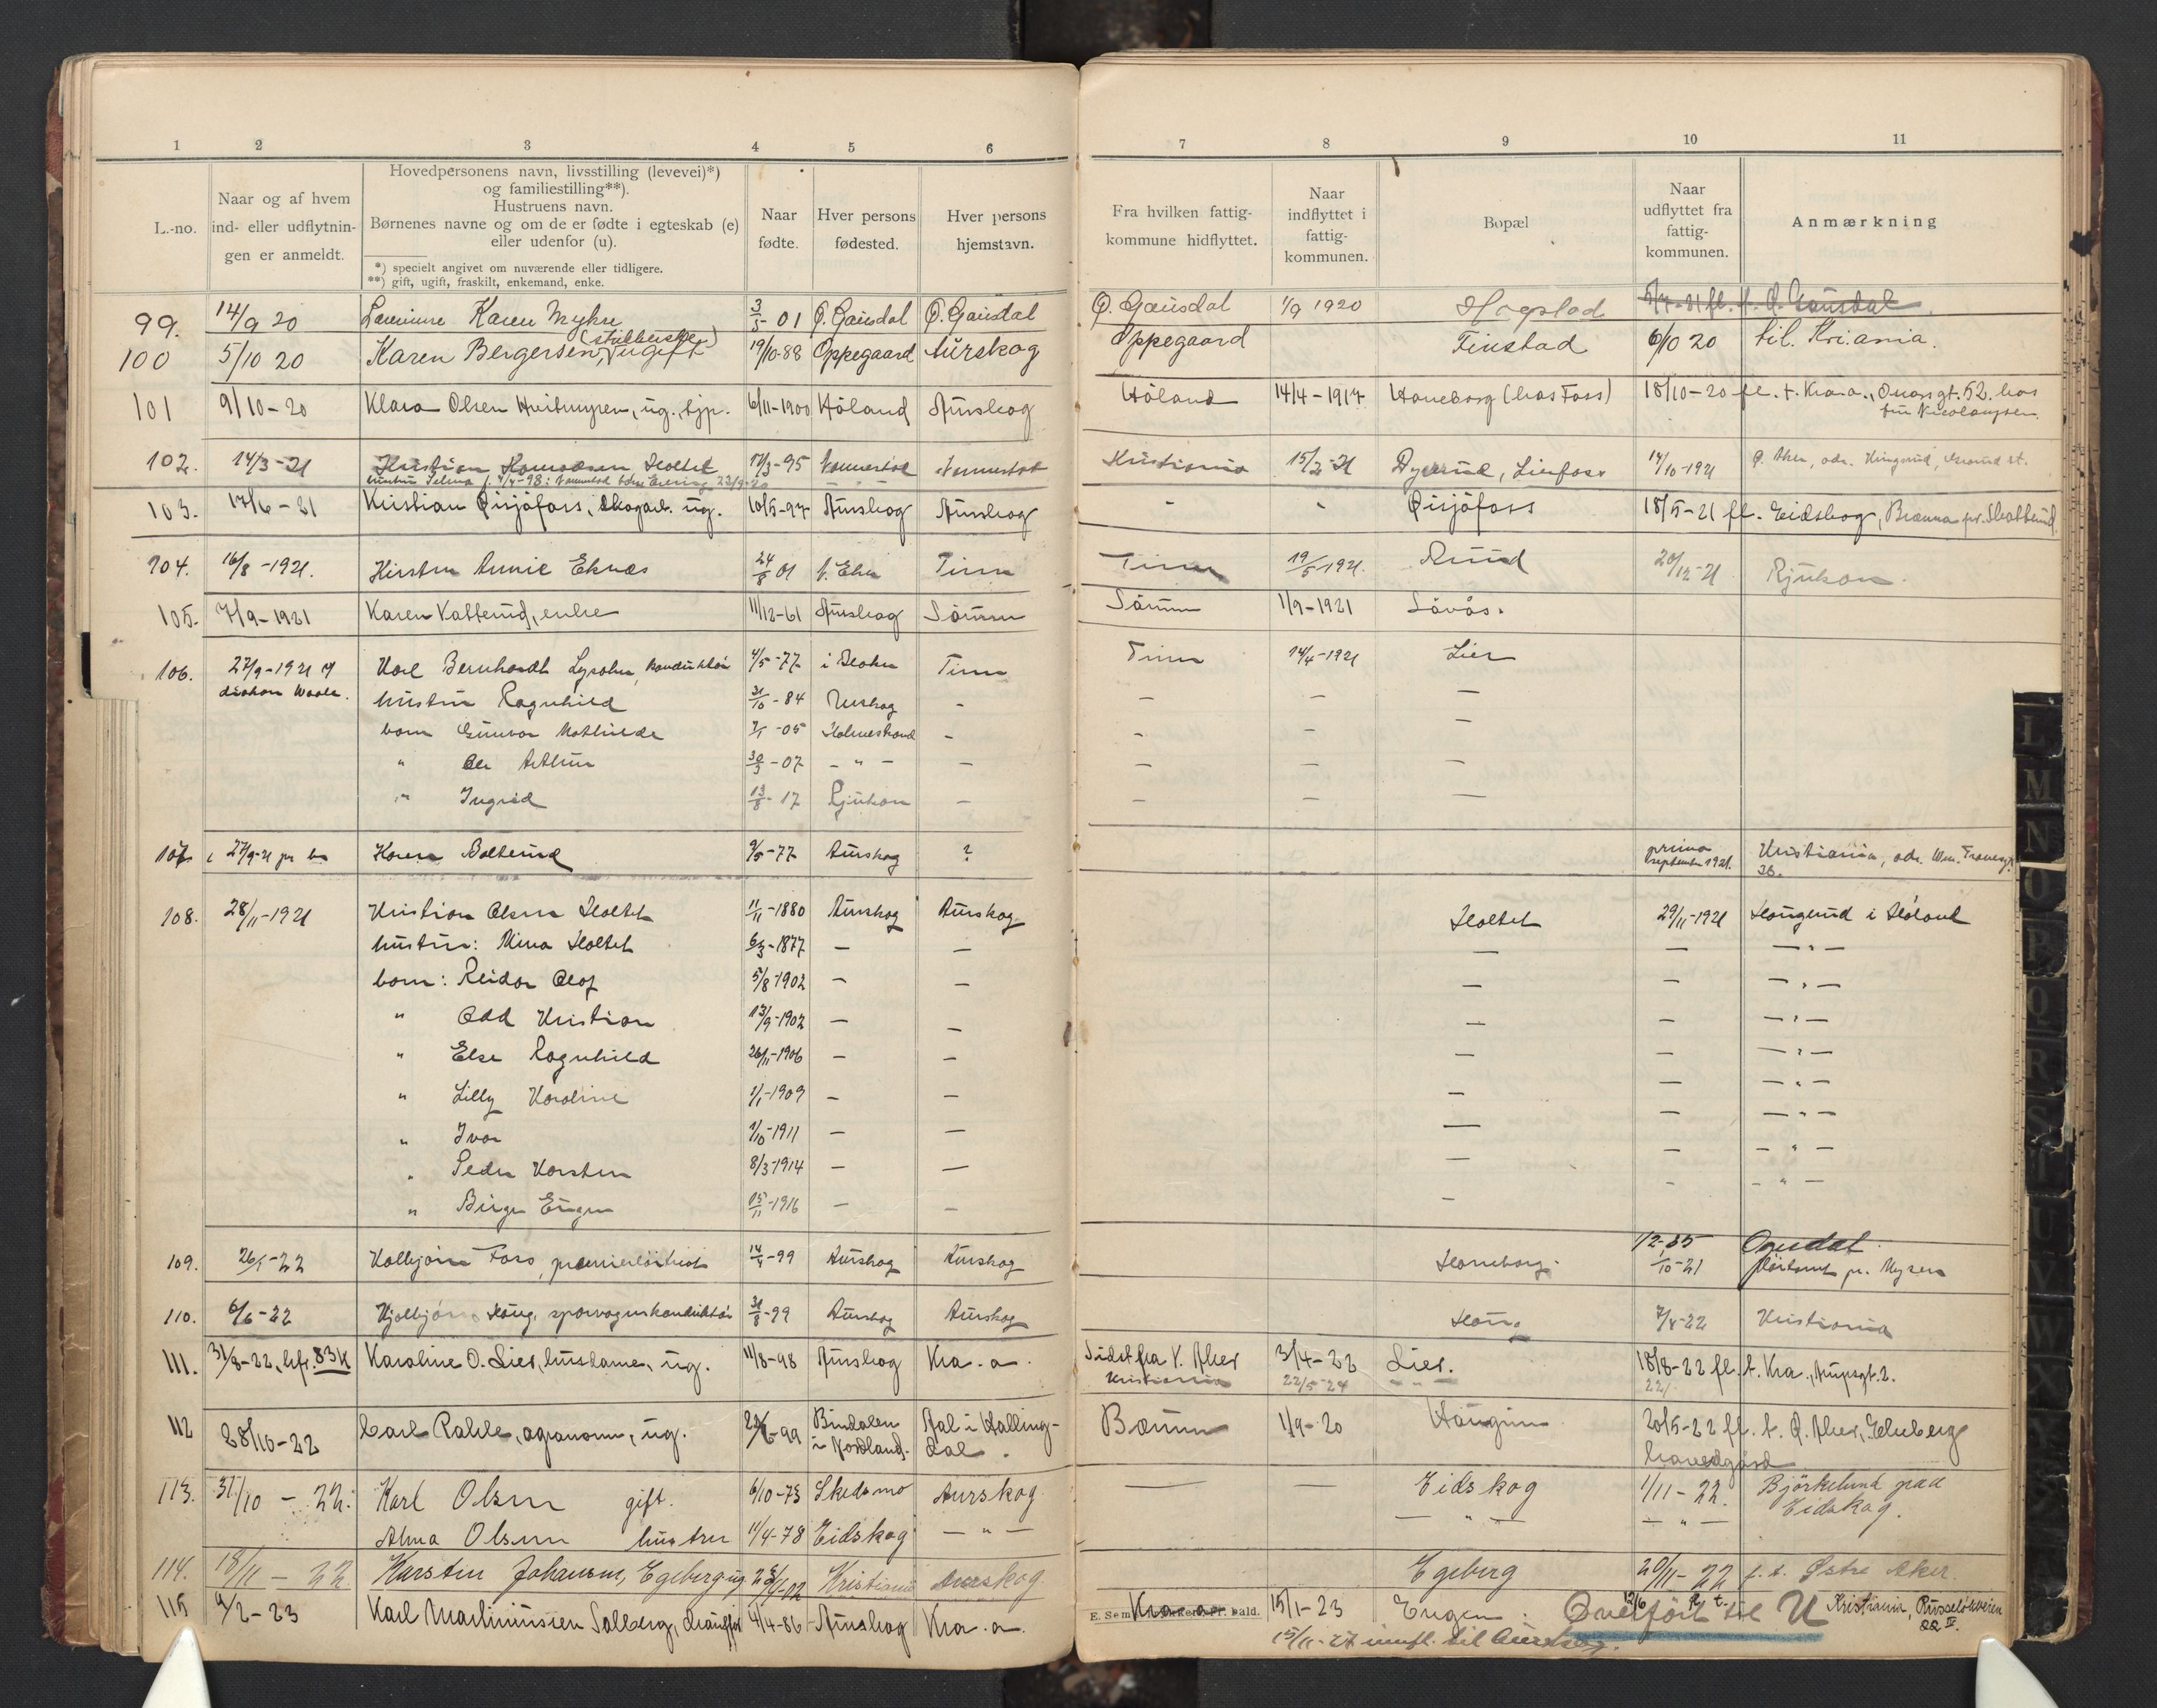 1 2 3 4 5 6 7 8 9 10 11
L.-no.
Naar og af hvem
ind- eller udflytnin-
gen er anmeldt.
Hovedpersonens navn, livsstilling (levevei)*)
og familiestilling**).
Hustruens navn.
Børnenes navne og om de er fødte i egteskab (e)
eller udenfor (u).
*) specielt angivet om nuværende eller tidligere.
**) gift, ugift, fraskilt, enkemand, enke.
Naar
fødte.
Hver persons
fødested.
Hver persons
hjemstavn.
Fra hvilken fattig-
kommune hidflyttet.
Naar
indflyttet i
fattig-
kommunen.
Bopæl
Naar
udflyttet fra
fattig-
kommunen.
Anmærkning
99. 14/9 20 Karen Myhre 3/5 01 Ø. Gausdal Ø. Gausdal Ø. Gausdal 1/9 1920 Hogstad Ø. Gausdal
100 5/10 20 Karen Bergersen, ugift 19/10-88 Oppegaard Aurskog Oppegaard Finstad 6/10 20 til Kri.ania.
101 9/10-20 Klara Olsen Hvitmyren, ug., tjp. 6/11-1900 Höland Aurskog Höland 14/4-1917 Haneborg (hos Foss) 18/10-20 fl. t. Kra.a., 52. hos
fru Nicolaysen
102. 14/3-21 Kristian Holtet 17/3-95 Nannestad Nannestad Kristiania 15/2-21 Lierfoss 14/10-1921 Ø. Aker, adr.
hustru Selma
103. 17/6-21 Kristian Øisjöfoss, skogarb. ug. 10/5-97 Aurskog Aurskog - - Øisjöfoss 18/5-21 fl. Eidskog, pr. Skotterud
104. 16/8-1921. Kirsten Annie Eknæs 24/8 01 Tinn Tinn 19/5-1921. Rud 20/12-21 Rjukan.
105. 7/9-1921 Karen Katterud, enke 11/12-61 Aurskog Sörum Sörum 1/9-1921 Lövås.
106. 27/9-1921 Karl Bernhardt konduktör 4/5-77 Tinn Tinn 14/4-1921 Lier
hustru Ragnhild 31/10-84 Aurskog - — — —
barn Gunvor Mathilde -05 Holmestrand — - — —
" Arthur 30/3-07 - " - — — — —
" Ingrid 13/8-17 Rjukan — — — —
107. 27/9-21 Karen Bolterud 9/5-77 Aurskog ? primo
september 1921. Kristiania, adr.
26.
108. 28/11-1921 Kristian Olsen Holtet 11/11-1880 Aurskog Aurskog Holtet 29/11-1921 Haugerud i Höland
hustru: Mina Holtet 6/3-1877 — — — — — " —
barn: Reidar Olof 5/8 1902 — — — — — " —
" Odd Kristian 13/9-1902 — — — — — " —
" Else Ragnhild 26/11-1906 — — — — — " —
" Lilly Karoline 1/1-1909 — — — — — " —
" Ivar 1/10-1911 — — — — — " —
" Peder Karsten 8/3 1914 — — — — — " —
" Birger Eugen 15/11-1916 — — — - - " —
109. 26/1-22 Kolbjörn Foss, premierlöitnant 14/4-99 Aurskog Aurskog Haneborg. /10-21 pr. Mysen
110. 6/6-22 Haug, sporvognskonduktör 31/8-99 Aurskog Aurskog Haug 7/4-22 Kristiania
111. 31/8-22, Karoline O. Lier, husdame, ug. 11/8-98 Aurskog Kra.a. Sidst fra V. Aker 3/4-22 Lier. 18/8-22 fl. t. Kra.,
Kristiania 22/5-24
112 28/10-22 Carl agronom, ug. -99 Bindalen
i Nordland. Aal i Halling-
dal. Bærum 1/9-20 Haugum 20/5-22 fl. t. Ø. Aker,
hovedgård
113. 31/10-22: Karl Olsen gift. 6/10-73 Skedsmo Aurskog. — — Eidskog 1/11-22. Björkelund pad
Eidskog.
Alma Olsen hustru 11/4-78 Eidskog — " — — " — — " —
114. 18/11-22 Karsten Johansen, Egeberg ug. Kristiania Aurskog. Egeberg 20/11-22 f. t. Østre Aker.
115 9/2-23 Karl Martiniussen Salberg, 4/4-86 Aurskog Kra.a. Kra.a. 15/1-23 Engen: Overfört til U Kristiania,
22 IV.
15/11-27 innfl. til Aurskog.
L M N O P Q R S T U V